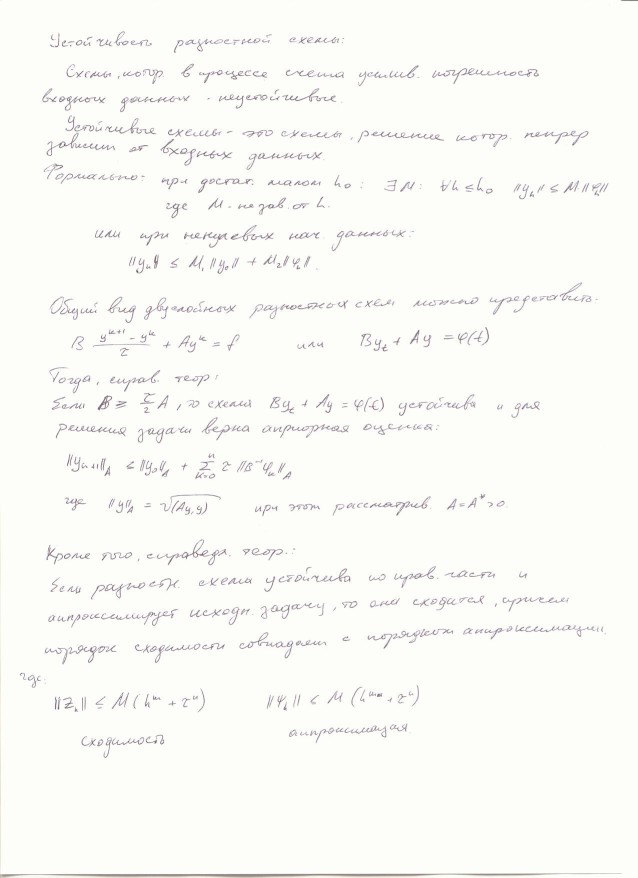 Устойчивость разностной схемы:
Схемы, котор. в процессе счета усилив. погрешность
входных данных - неустойчивые.
Устойчивые схемы - это схемы, решение котор. непрер
зависит от входных данных.
Формально: при достат. малом h₀: ∃ M: ∀h ≤ h₀ ||yₕ|| ≤ M||φₕ||
где M - незав. от h.
или при ненулевых нач. данных:
||yₕ|| ≤ M₁||y₀|| + M₂||φₕ||.
Общий вид двуслойных разностных схем можно представить.
B (yᵏ⁺¹ - yᵏ)/τ + Ayᵏ = f или Byₜ + Ay = φ(t)
Тогда, справ. теор:
Если B ≥ τ/2 A, то схема Byₜ + Ay = φ(t) устойчива и для
решения задачи верна априорная оценка:
||yₙ₊₁||_A ≤ ||y₀||_A + Σₖ₌₀ⁿ τ ||B⁻¹φₖ||_A
где ||y||_A = √(Ay,y) при этом рассматрив. A = A* > 0.
Кроме того, справедл. теор.:
Если разностн. схема устойчива по прав. части и
аппроксимирует исходн. задачу, то она сходится, причем
порядок сходимости совпадает с порядком аппроксимации,
где:
||Zₕ|| ≤ M(hᵐ + τⁿ) ||Ψₕ|| ≤ M(hᵐ + τⁿ)
сходимость аппроксимация.